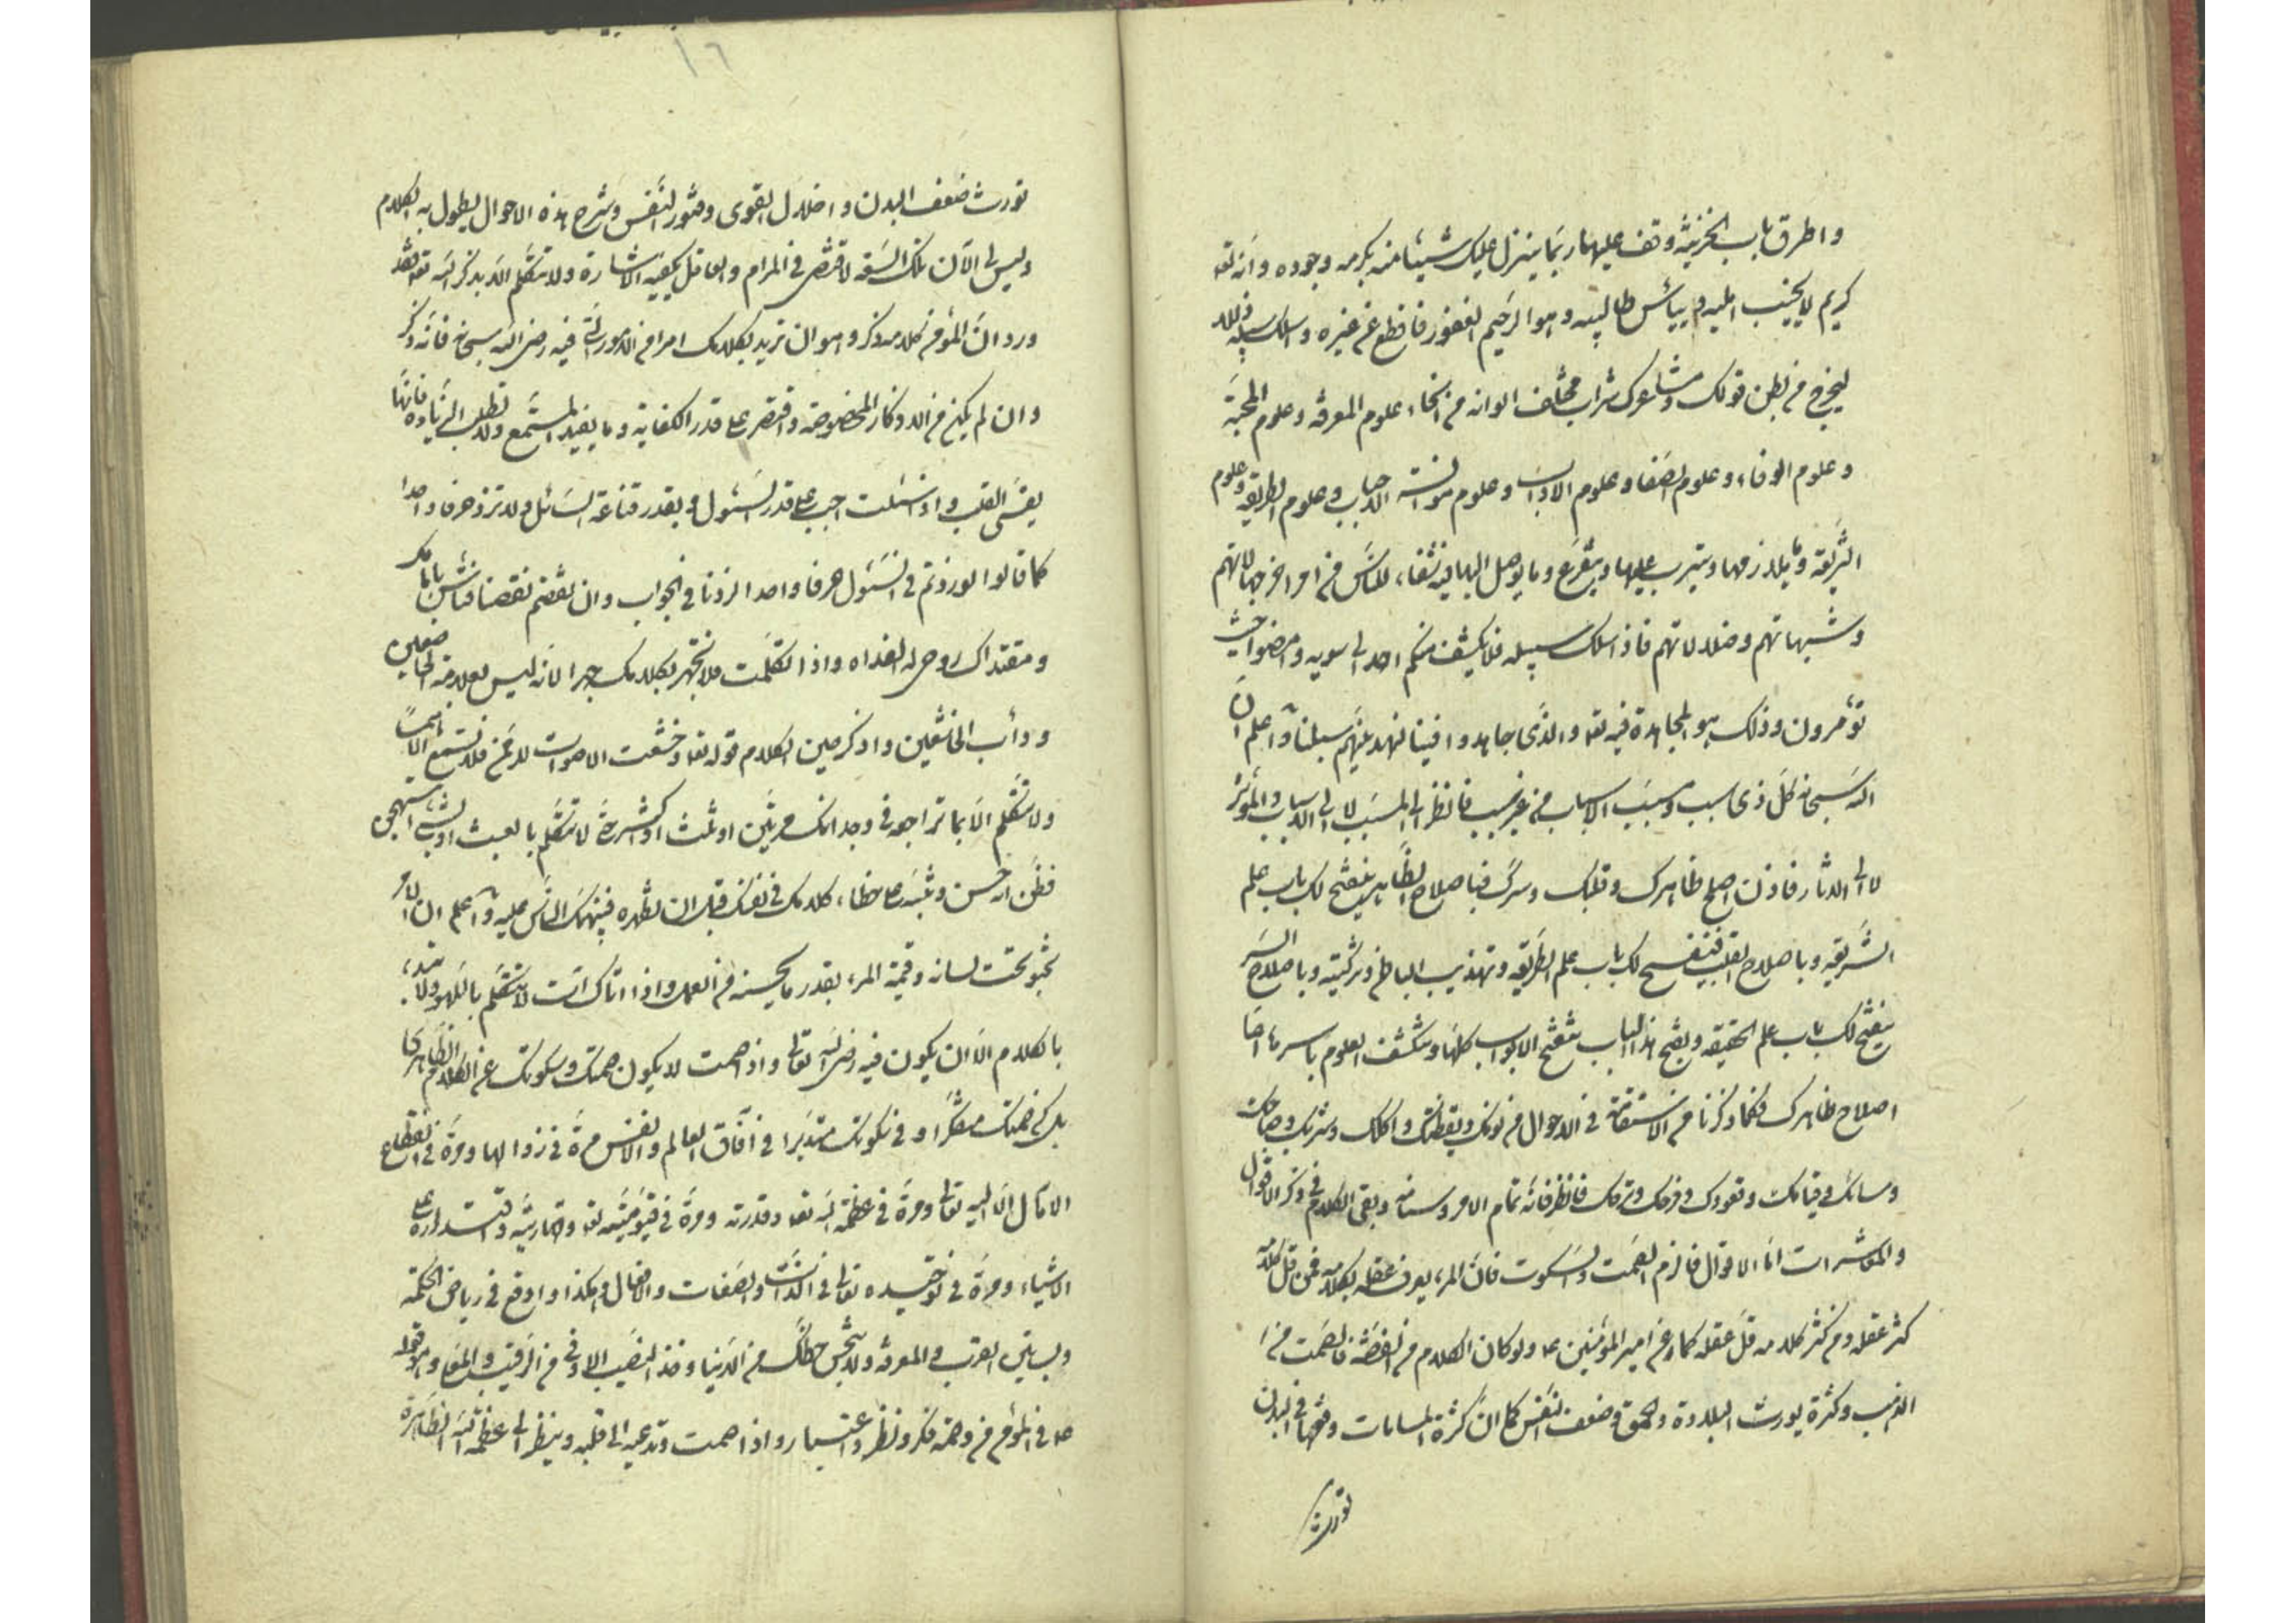 واطرق باب الخزينة وقف عليها ربما ينزل عليك شيئا منه بكرمه وجوده وانه تعا
كريم لا يخيب امليه ولا ييأس طالبيه وهو الرحيم الغفور فاقطع عن غيره واسلك سبيله ذللا
ليخرج من بطن قولك ومشاعرك شراب مختلف الوانه من انحاء علوم المعرفة وعلوم المحبة
وعلوم الوفاء وعلوم الصفا وعلوم الاداب وعلوم موانسة الاحباب وعلوم الطريقة وعلوم
الشريعة وما يلازمها ويترتب عليها ويتفرع وما يوصل اليها فيه شفاء للناس من امراض جهالاتهم
وشبهاتهم وضلالاتهم فاذا سلك سبيله فلا يلتفت منكم احد الى سويه وامضوا حيث
تؤمرون وذلك هو المجاهدة فيه تعا والذين جاهدوا فينا لنهدينهم سبلنا واعلم ان
الله سبحانه كل ذى سبب ومسبب الاسباب من غير سبب فانظر الى المسبب لا الى الاسباب والمؤثر
لا الى الاثار فاذن اصلح ظاهرك وقلبك وسرك فباصلاح الظاهر ينفتح لك باب علم
الشريعة وباصلاح القلب ينفتح لك باب علم الطريقة وتهذيب الباطن وتزكيته وباصلاح السر
ينفتح لك باب علم الحقيقة وبفتح هذا الباب تنفتح الابواب كلها وتنكشف العلوم باسرها اما
اصلاح ظاهرك فكما ذكرنا من الاستقامة في الاحوال من نومك ويقظتك واكلك وشربك
وقيامك وقعودك فانظر فانه تمام الامر وسنامه وبقى الكلام في ذكر الاقوال
والمعاشرات اما الاقوال فالزم الصمت والسكوت فان المرء يعرف عقله بكلامه فمن قل كلامه
كثر عقله ومن كثر كلامه قل عقله كما عن امير المؤمنين ع ولو كان الكلام من الفضة فالصمت من
الذهب وكثرة يورث البلادة والحمق وضعف النفس كما ان كثرة المسامات وفتحها في البدن
تورث
١٦
تورث ضعف البدن واخلال القوى وفتور النفس وشرح هذه الاحوال يطول به الكلام
وليس لى الآن تلك السعة لاقتضى في المرام والعاقل يكفيه الاشارة ولا تتكلم الا بذكر الله تعا فقد
ورد ان المؤمن كلامه ذكر وهو ان تريد بكلامك امرا من الامور التى فيه رضى الله سبحانه فانه ذكر
وان لم يكن من الاذكار المخصوصة واقتصر على قدر الكفاية وما يفيد المستمع ولا تطلب الزيادة فانها
يقسى القلب واذا سئلت اجب على قدر السئول وبقدر قناعة السائل ولا تزد حرفا واحدا
كما قالوا لو زدتم في السئول حرفا واحدا لزدنا في الجواب وان نقصتم نقصنا فتأس بامامك
ومقتداك روحى له الفداء واذا تكلمت فلا تجهر بكلامك جهرا لانه ليس بعلامة الخاضعين
ودأب الخاشعين واذكر حين الكلام قوله تعا وخشعت الاصوات للرحمن فلا تسمع الا همسا
ولا تتكلم الا بما تراجعه في وجدانك مرتين او ثلث او عشر مرة لا تتكلم بالعبث
فتظن انه حسن وتنبه على خطاء كلامك في نفسك قبل ان تظهره فينهك الناس عليه واعلم ان المرء
مخبو تحت لسانه وقيمة المرء بقدر ما يحسنه من العمل واذا اتاك آت لا تتكلم باللهو ولا تبتدء
بالكلام الا ان يكون فيه رضى الله تعالى واذا صمت لا يكون صمتك وسكوتك عن الكلام الظاهرى
بل كن في صمتك متفكرا وفي سكوتك متدبرا في آفاق العالم والانفس مرة في زوالها ومرة في انقطاع
الآمال الا اليه تعالى ومرة في عظمة الله تعا وقدرته ومرة في قيوميته تعا وقهاريته واقتداره على
الاشياء ومرة في توحيده تعالى في الذات والصفات والافعال وهكذا واوقع في رياض الحكمة
وبساتين القرب والمعرفة ولا تبخس حظك من الدنيا وخذ النصيب الاوفى من الرقيب والمعلى وهو قوله
ع في المؤمن من وصمته فكر ونظره اعتبار واذا صمت وتدعيه الى قلبه وينظر الى عظمة الله الظاهرة